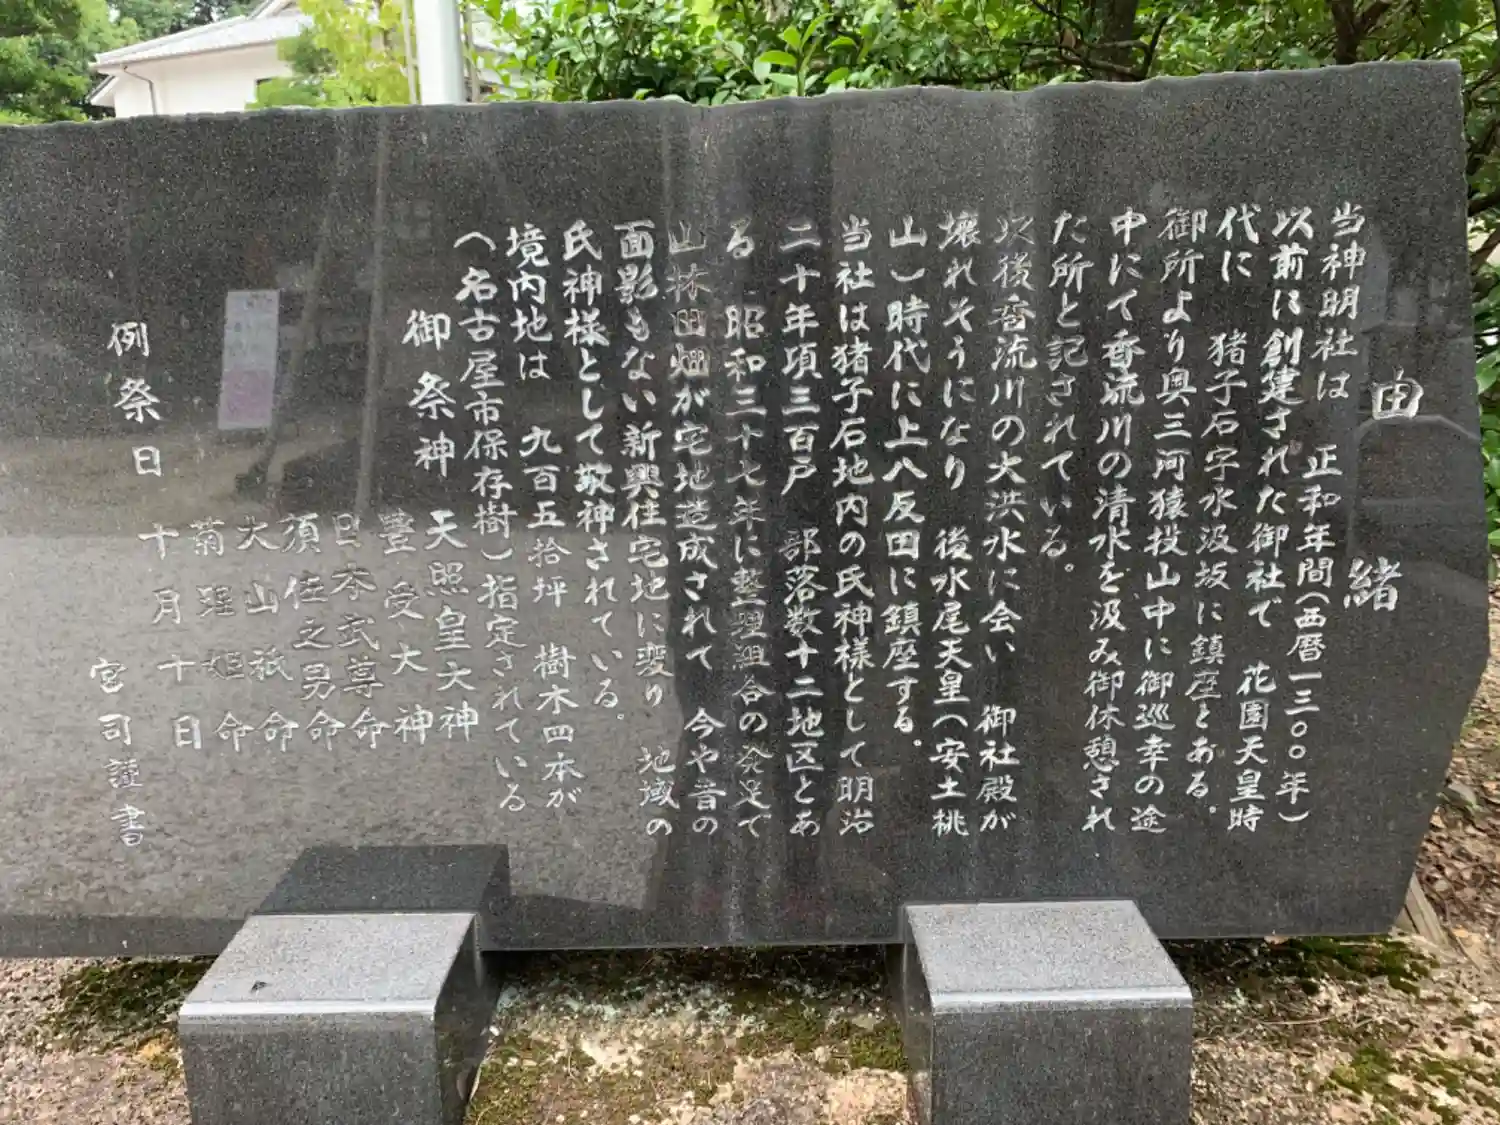 由緒
当神明社は　正和年間（西暦一三〇〇年）
以前に創建された御社で　花園天皇時
代に　猪子石字水汲坂に鎮座とある。
御所より奥三河猿投山中に御巡幸の途
中にて香流川の清水を汲み御休憩され
た所と記されている。
以後香流川の大洪水に会い　御社殿が
壊れそうになり　後水尾天皇（安土桃
山）時代に上八反田に鎮座する。
当社は猪子石地内の氏神様として明治
二十年項三百戸　部落数十二地区とあ
る　昭和三十七年に整理組合の発足で
山林田畑が宅地造成されて　今や昔の
面影もない新興住宅地に変り　地域の
氏神様として敬神されている。
境内地は　九百五拾坪　樹木四本が
（名古屋市保存樹）指定されている
御祭神　天照皇大神
豊受大神
日本武尊命
須佐之男命
大山祇命
菊理姫命
例祭日　十月十日
宮司謹書